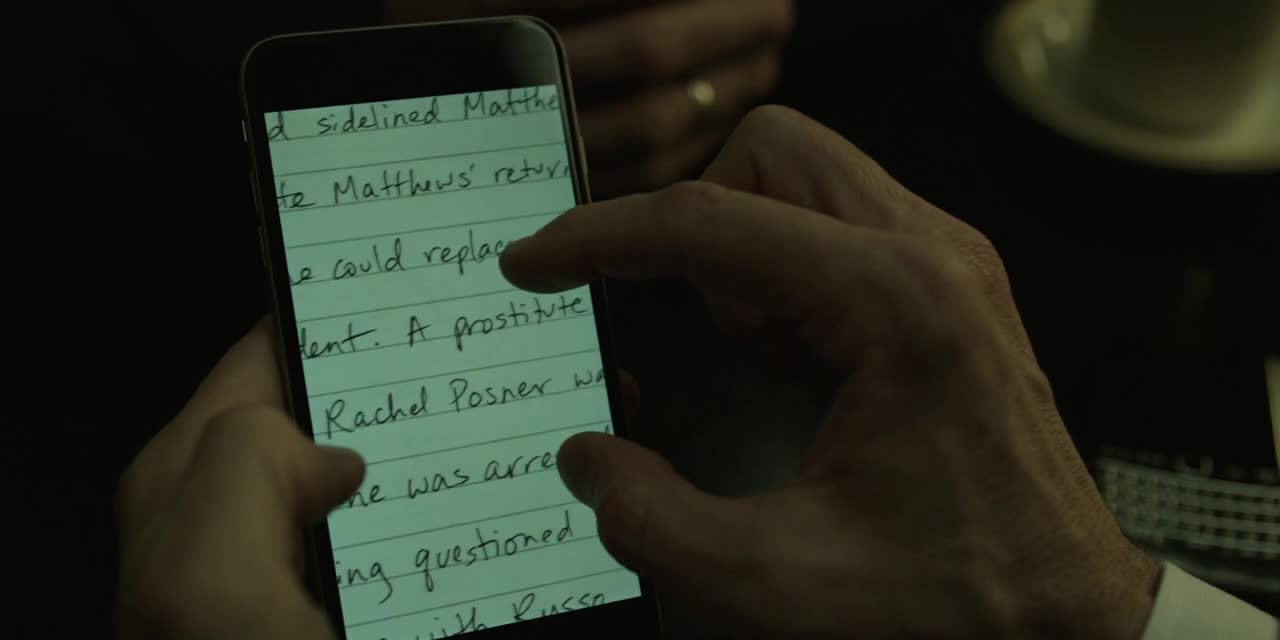 d sidelined Matthe
te Matthews' retur
e could replac
dent. A prostitute
Rachel Posner wa
he was arre
ing questioned
with Russo